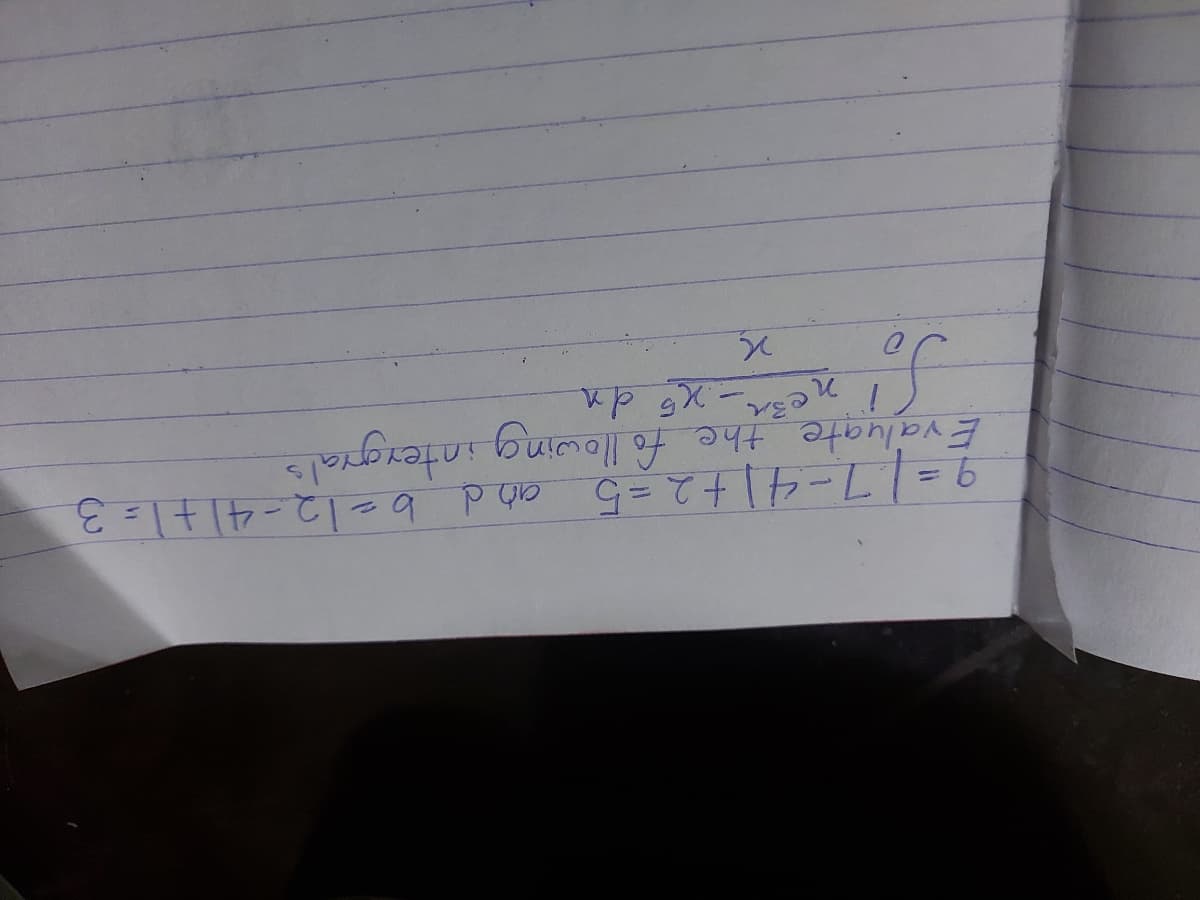 a = |7-4|+2=5 and b=|2-4|+1=3
Evaluate the following intergrals
∫₀¹ (xe³ˣ - x⁵)/x dx